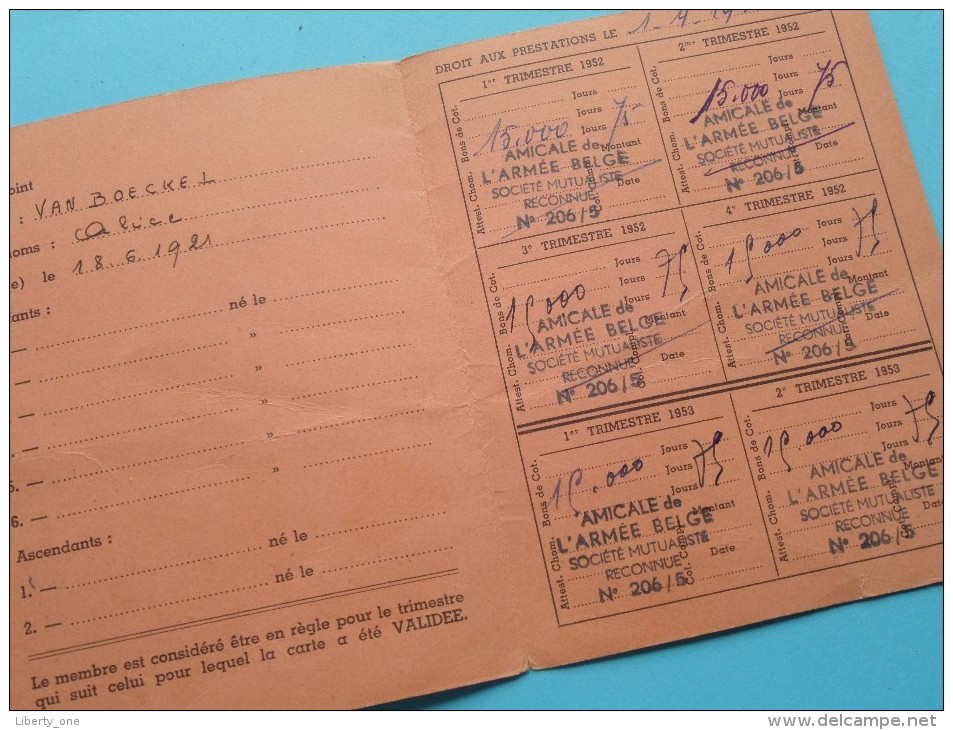 oint
: VAN BOECKEL
noms : Alice
e) le 18.6.1921
ants :
— né le
— »
— »
— »
5. — »
6. —
Ascendants :
1. — né le
2. — né le
Le membre est considéré être en règle pour le trimestre
qui suit celui pour lequel la carte a été VALIDEE.
DROIT AUX PRESTATIONS LE 1-4-19
1er TRIMESTRE 1952
Attest. Chom. Bons de Cot.
Jours
Jours
15.000 Jours 75
Montant
Cot. Compl. Date
AMICALE de
L'ARMÉE BELGE
SOCIÉTÉ MUTUALISTE
RECONNUE
N° 206/5
2me TRIMESTRE 1952
Attest. Chom. Bons de Cot.
Jours
15.000 Jours 75
Montant
Date
AMICALE de
L'ARMÉE BELGE
SOCIÉTÉ MUTUALISTE
RECONNUE
N° 206/5
3e TRIMESTRE 1952
Attest. Chom. Bons de Cot.
Jours
15000 Jours 75
Jours
Montant
Cot. Compl. Date
AMICALE de
L'ARMÉE BELGE
SOCIÉTÉ MUTUALISTE
RECONNUE
N° 206/5
4e TRIMESTRE 1952
Attest. Chom. Bons de Cot.
Jours
15000 Jours 75
Jours
Montant
Date
AMICALE de
L'ARMÉE BELGE
SOCIÉTÉ MUTUALISTE
RECONNUE
N° 206/5
1er TRIMESTRE 1953
Attest. Chom. Bons de Cot.
Jours
15.000 Jours 75
Jours
Montant
Cot. Compl. Date
AMICALE de
L'ARMÉE BELGE
SOCIÉTÉ MUTUALISTE
RECONNUE
N° 206/5
2e TRIMESTRE 1953
Attest. Chom. Bons de Cot.
Jours
15.000 Jours 75
Jours
Montant
Date
AMICALE de
L'ARMÉE BELGE
SOCIÉTÉ MUTUALISTE
RECONNUE
N° 206/5
Liberty_one
www.delcampe.net